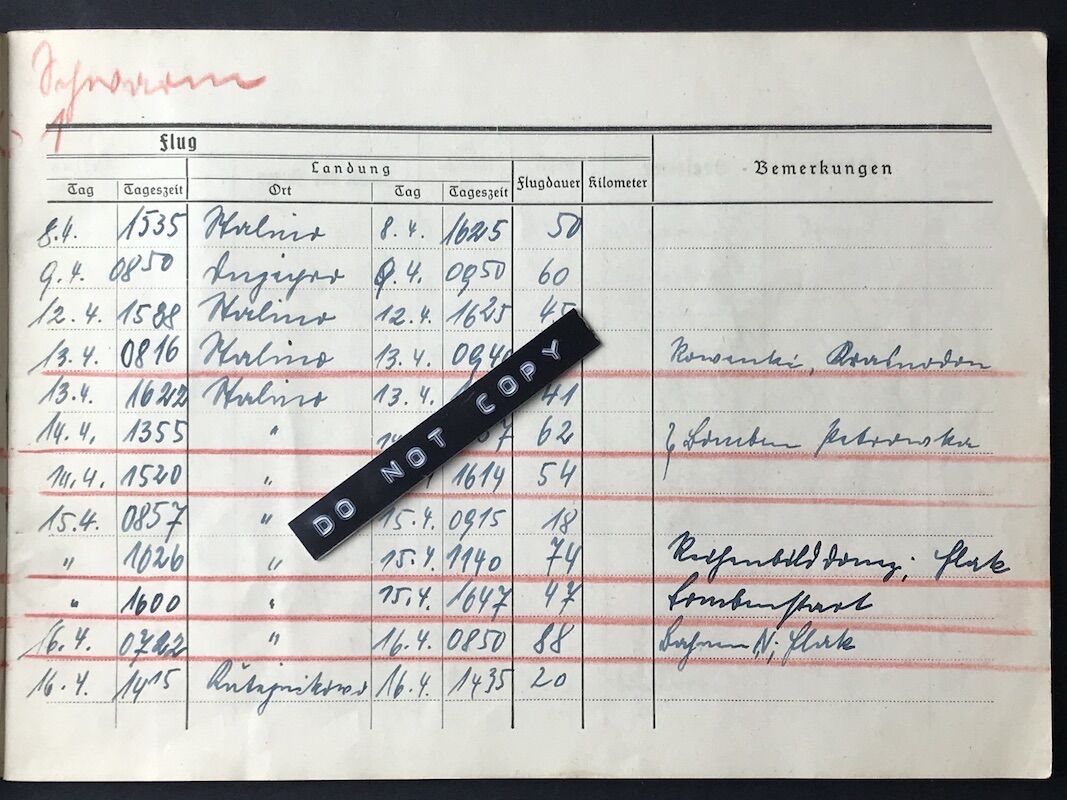 Schwarm
1
Flug
Landung
Bemerkungen
Tag Tageszeit Ort Tag Tageszeit Flugdauer Kilometer
8.4. 1535 Stalino 8.4. 1625 50
9.4. 0850 9.4. 0950 60
12.4. 15 Stalino 12.4. 1625 45
13.4. 0816 Stalino 13.4. 094 Rowenki, Krasnodon
13.4. 1622 Stalino 13.4. 41
14.4. 1355 " 14 7 62 Bomben Petrowska
14.4. 1520 " 1614 54
15.4. 0857 " 15.4. 0915 18
" 1026 " 15.4. 1140 74 Reihenbild Flak
" 1600 " 15.4. 1647 47 Bombenstart
16.4. 0722 " 16.4. 0850 88 Bahnen N, Flak
16.4. 1415 Kuteinikowo 16.4. 1435 20
DO NOT COPY